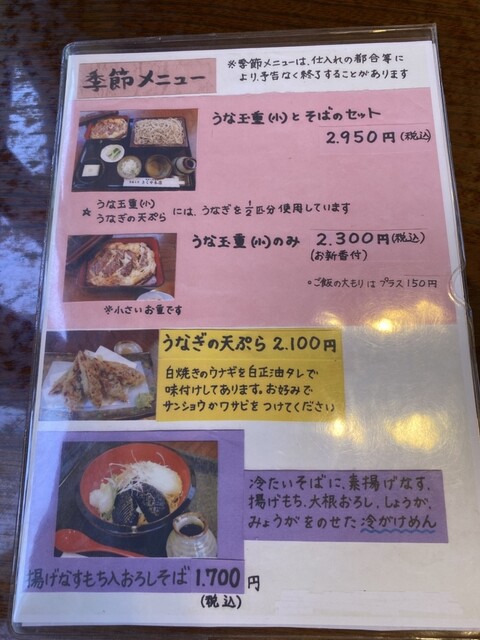 季節メニュー
※季節メニューは、仕入れの都合等に
より、予告なく終了することがあります
うな玉重(小)とそばのセット
2.950円(税込)
☆ うな玉重(小)
うなぎの天ぷら には、うなぎを1/2匹分使用しています
うな玉重(小)のみ 2.300円(税込)
(お新香付)
※小さいお重です
○ご飯の大もりはプラス150円
うなぎの天ぷら 2.100円
白焼きのウナギを白正油タレで
味付けしてあります。お好みで
サンショウかワサビをつけてください
冷たいそばに、素揚げなす、
揚げもち、大根おろし、しょうが、
みょうがをのせた冷がけめん
揚げなすもち入おろしそば 1.700円
(税込)